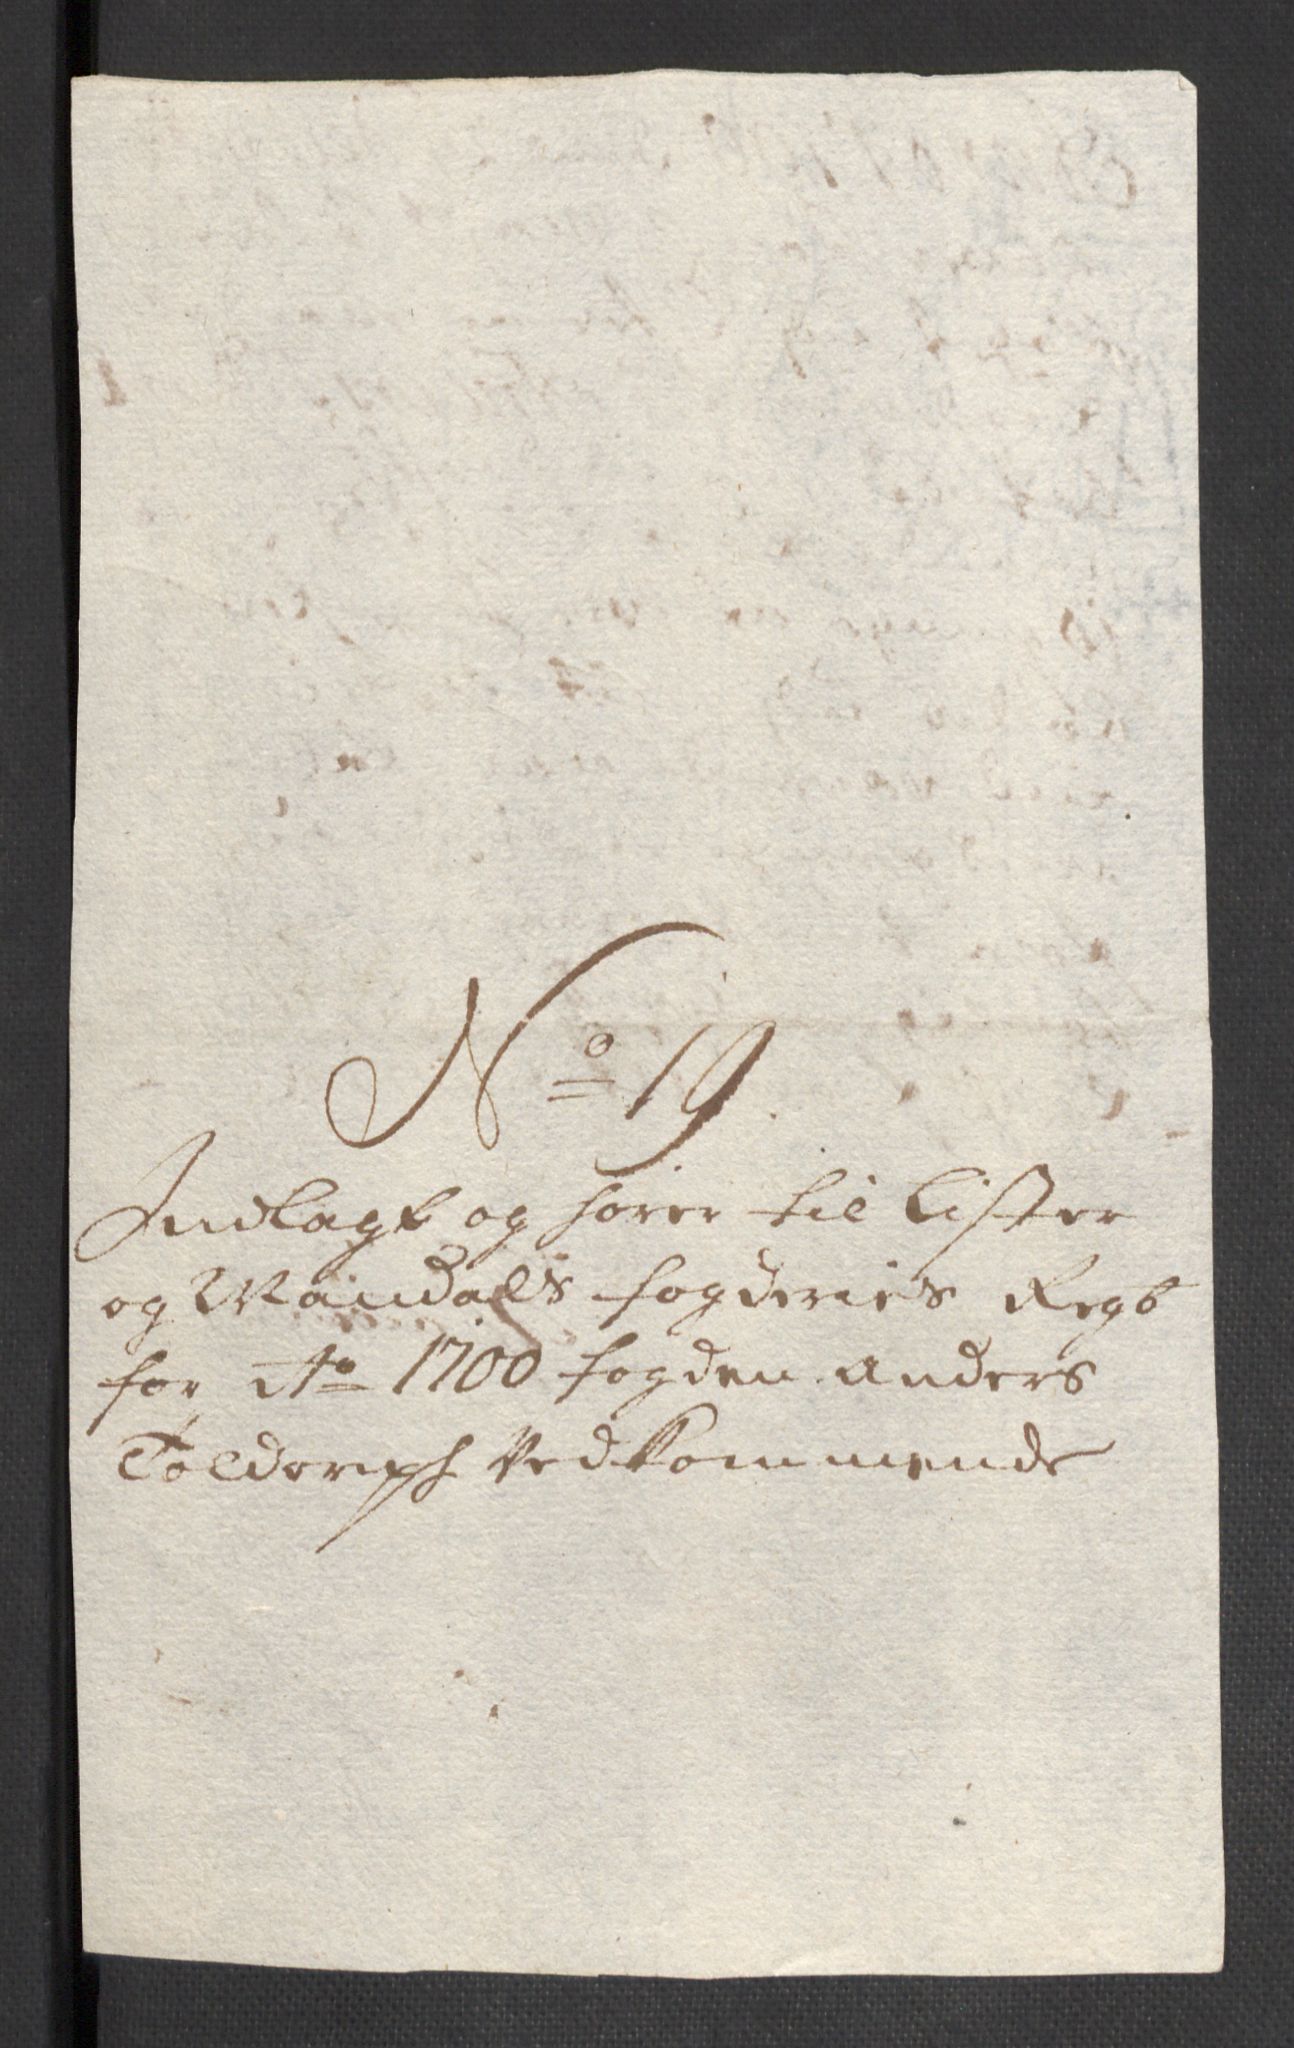 No 19
Indlagt og hører til Lister
og Mandals fogderies Regb
for Ao 1700 fogden Anders
Toldorph Vedkommende